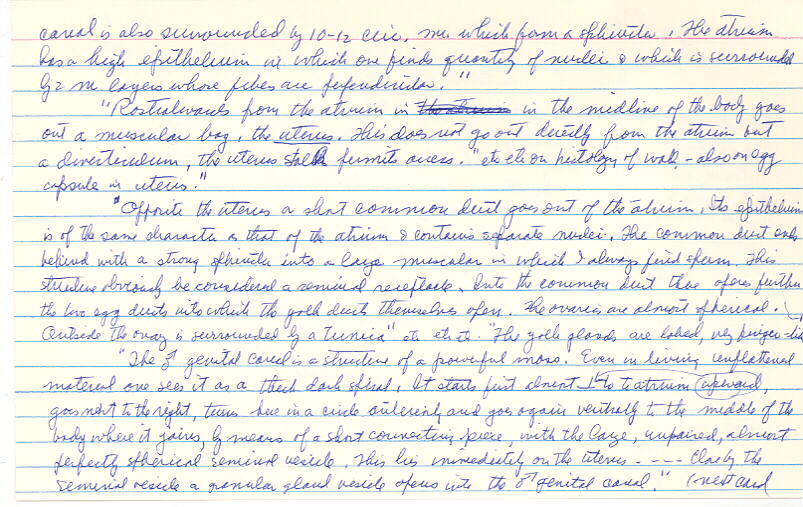 canal is also surrounded by 10-12 circ. mu. which form a sphincter. The atrium
has a high epithelium in which one finds quantity of nuclei & which is surrounded
by 2 m layers whose fibes are perpendicular."
"Rostralwards from the atrium in the midline of the body goes
out a muscular bag, the uterus. This does not go out directly from the atrium but
a diverticulum, the uterus stalk permits access." etc etc on histology of wall - also on egg
capsule in uterus."
"Opposite the uterus a short common duct goes out of the atrium. Its epithelium
is of the same character as that of the atrium & contains separate nuclei. The common duct ends
behind with a strong sphincter into a large muscular in which I always find sperm. This
structure obviously be considered a seminal receptacle. Into the common duct there opens further
the two egg ducts into which the yolk ducts themselves open. The ovaries are almost spherical.
Outside the ovary is surrounded by a tunica" etc etc etc. "The yolk glands are lobed, very finger-like
"The ♂ genital canal is a structure of a powerful mass. Even in living material
material one sees it as a thick dark spiral. It starts first almost to atrium upward,
goes next to the right, turns here in a circle anteriorly and goes again ventrally to the middle of the
body where it joins, by means of a short connecting piece, with the large, unpaired, almost
perfectly spherical seminal vesicle. This lies immediately on the uterus ---- Close by the
seminal vesicle a granular gland vesicle opens into the ♂ genital canal." (next card